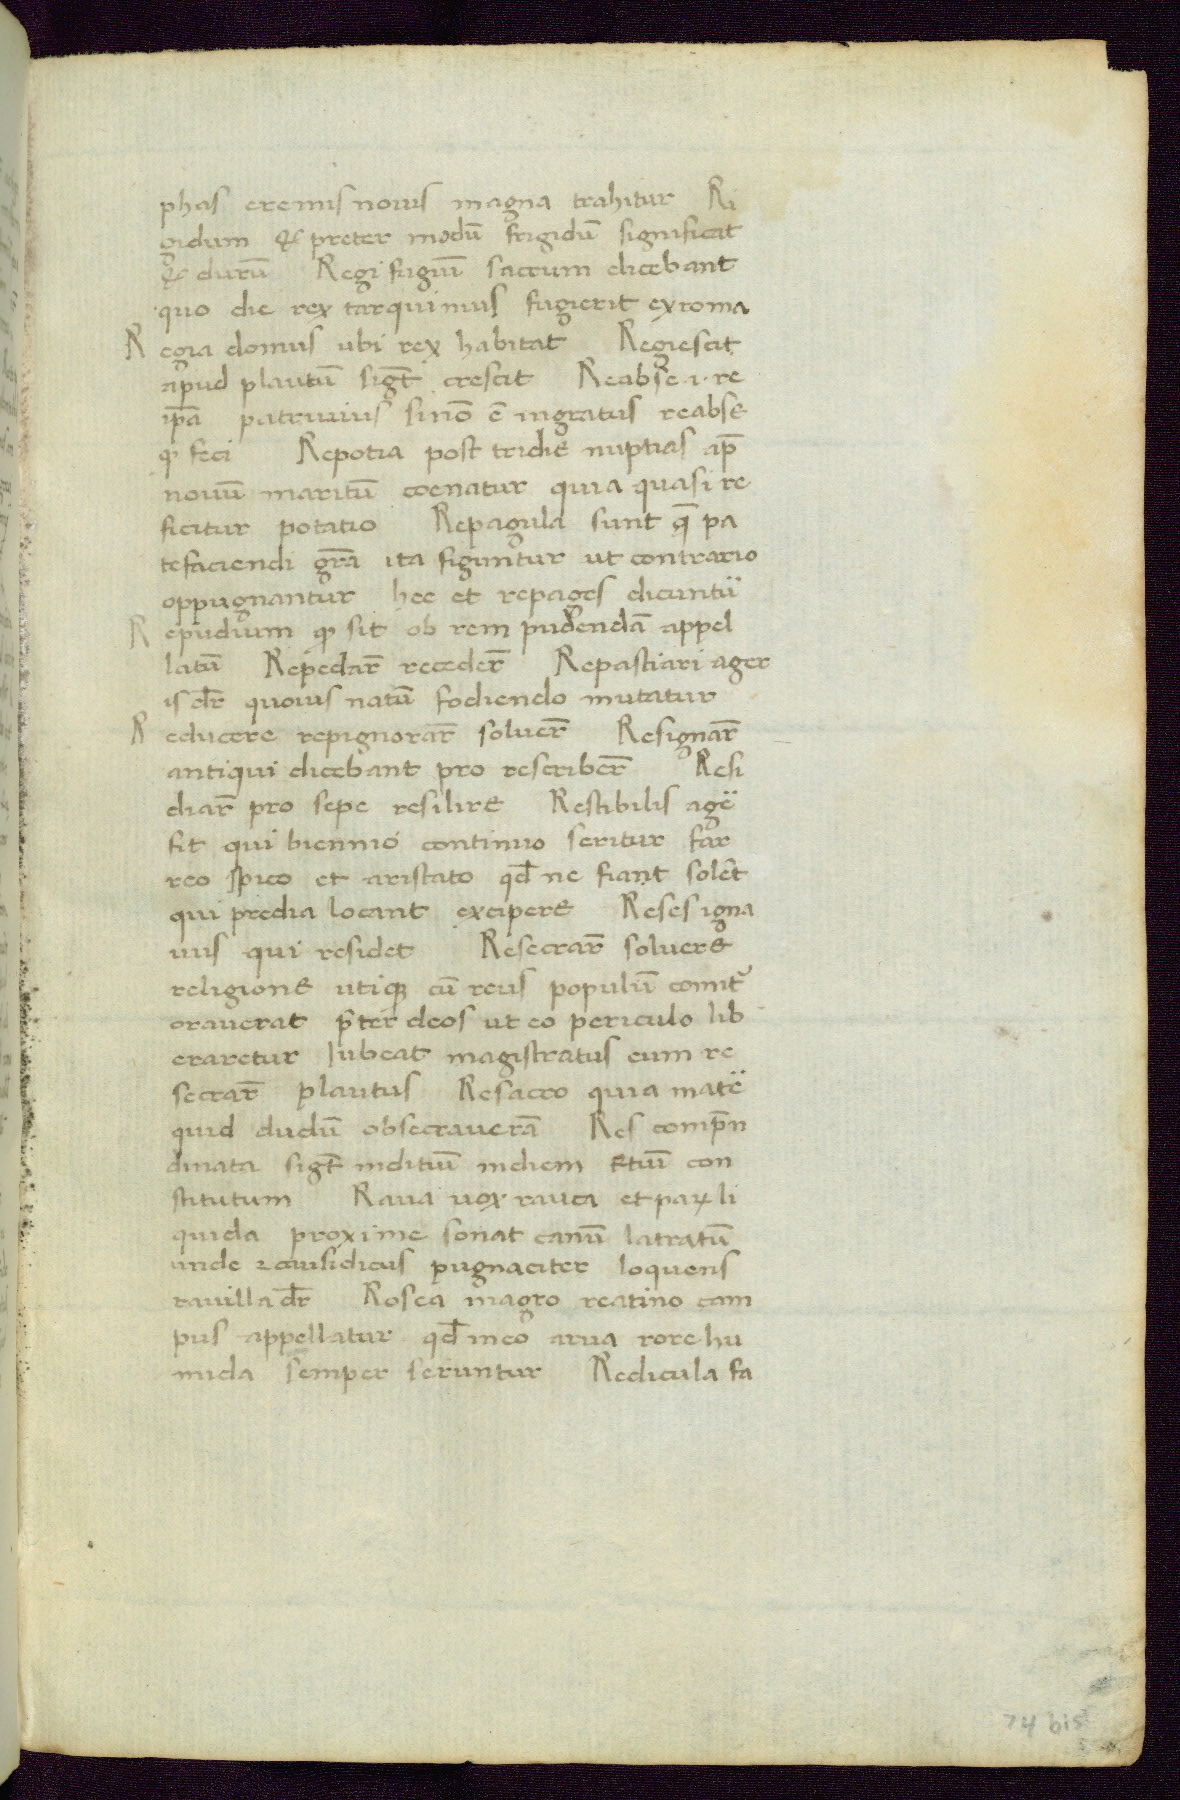 phas eremis novis magna trahitur Ri
gidum & preter modū frigidū significat
& durū Regi fugiū sacrum dicebant
quo die rex tarquinius fugierit ex roma
Regia domus ubi rex habitat Regiescit
apud plautū sigt̄ crescit Reabse .i. re
ip̄a patruvius sinō ē ingratus reabse
qͥ feci Repotia post tridie nuptias ap̄
novū maritū coenatur quia quasi re
ficitur potatio Repagula sunt q̄ pa
tefaciendi gr̄a ita figuntur ut contrario
oppugnantur hec et repages dicuntu͛
Repudium qͥ sit ob rem pudendā appel
latū Repedar̄ receder̄ Repastiari ager
is dr̄ quoius natū fodiendo mutatur
Reducere repignorar̄ solver̄ Resignar̄
antiqui dicebant pro rescriber̄ Resi
diar̄ pro sepe resilire Restibilis age͛
fit qui biennio continuo seritur far
reo spico et aristato qd̄ ne fiant solēt
qui predia locant excipere Reses igna
vus qui residet Resecrar̄ solvere
religione utiqꝫ cū reus populū comit᷑
oraverat p̄ter deos ut eo periculo lib
eraretur Iubeat magistratus eum re
secrar̄ plautus Resacro quia mate͛
quid dudū obsecraverā Res comp̄n
dinata sigt̄ inditiū in diem ttiū con
stitutum Rava vox rauca et paꝝ li
quida proxime sonat canū latratū
unde ⁊ causidicus pugnaciter loquens
ravilla dr̄ Rosea in agro reatino cam
pus appellatur qd̄ in eo arva rore hu
mida semper seruntur Redicula fa
74 bis